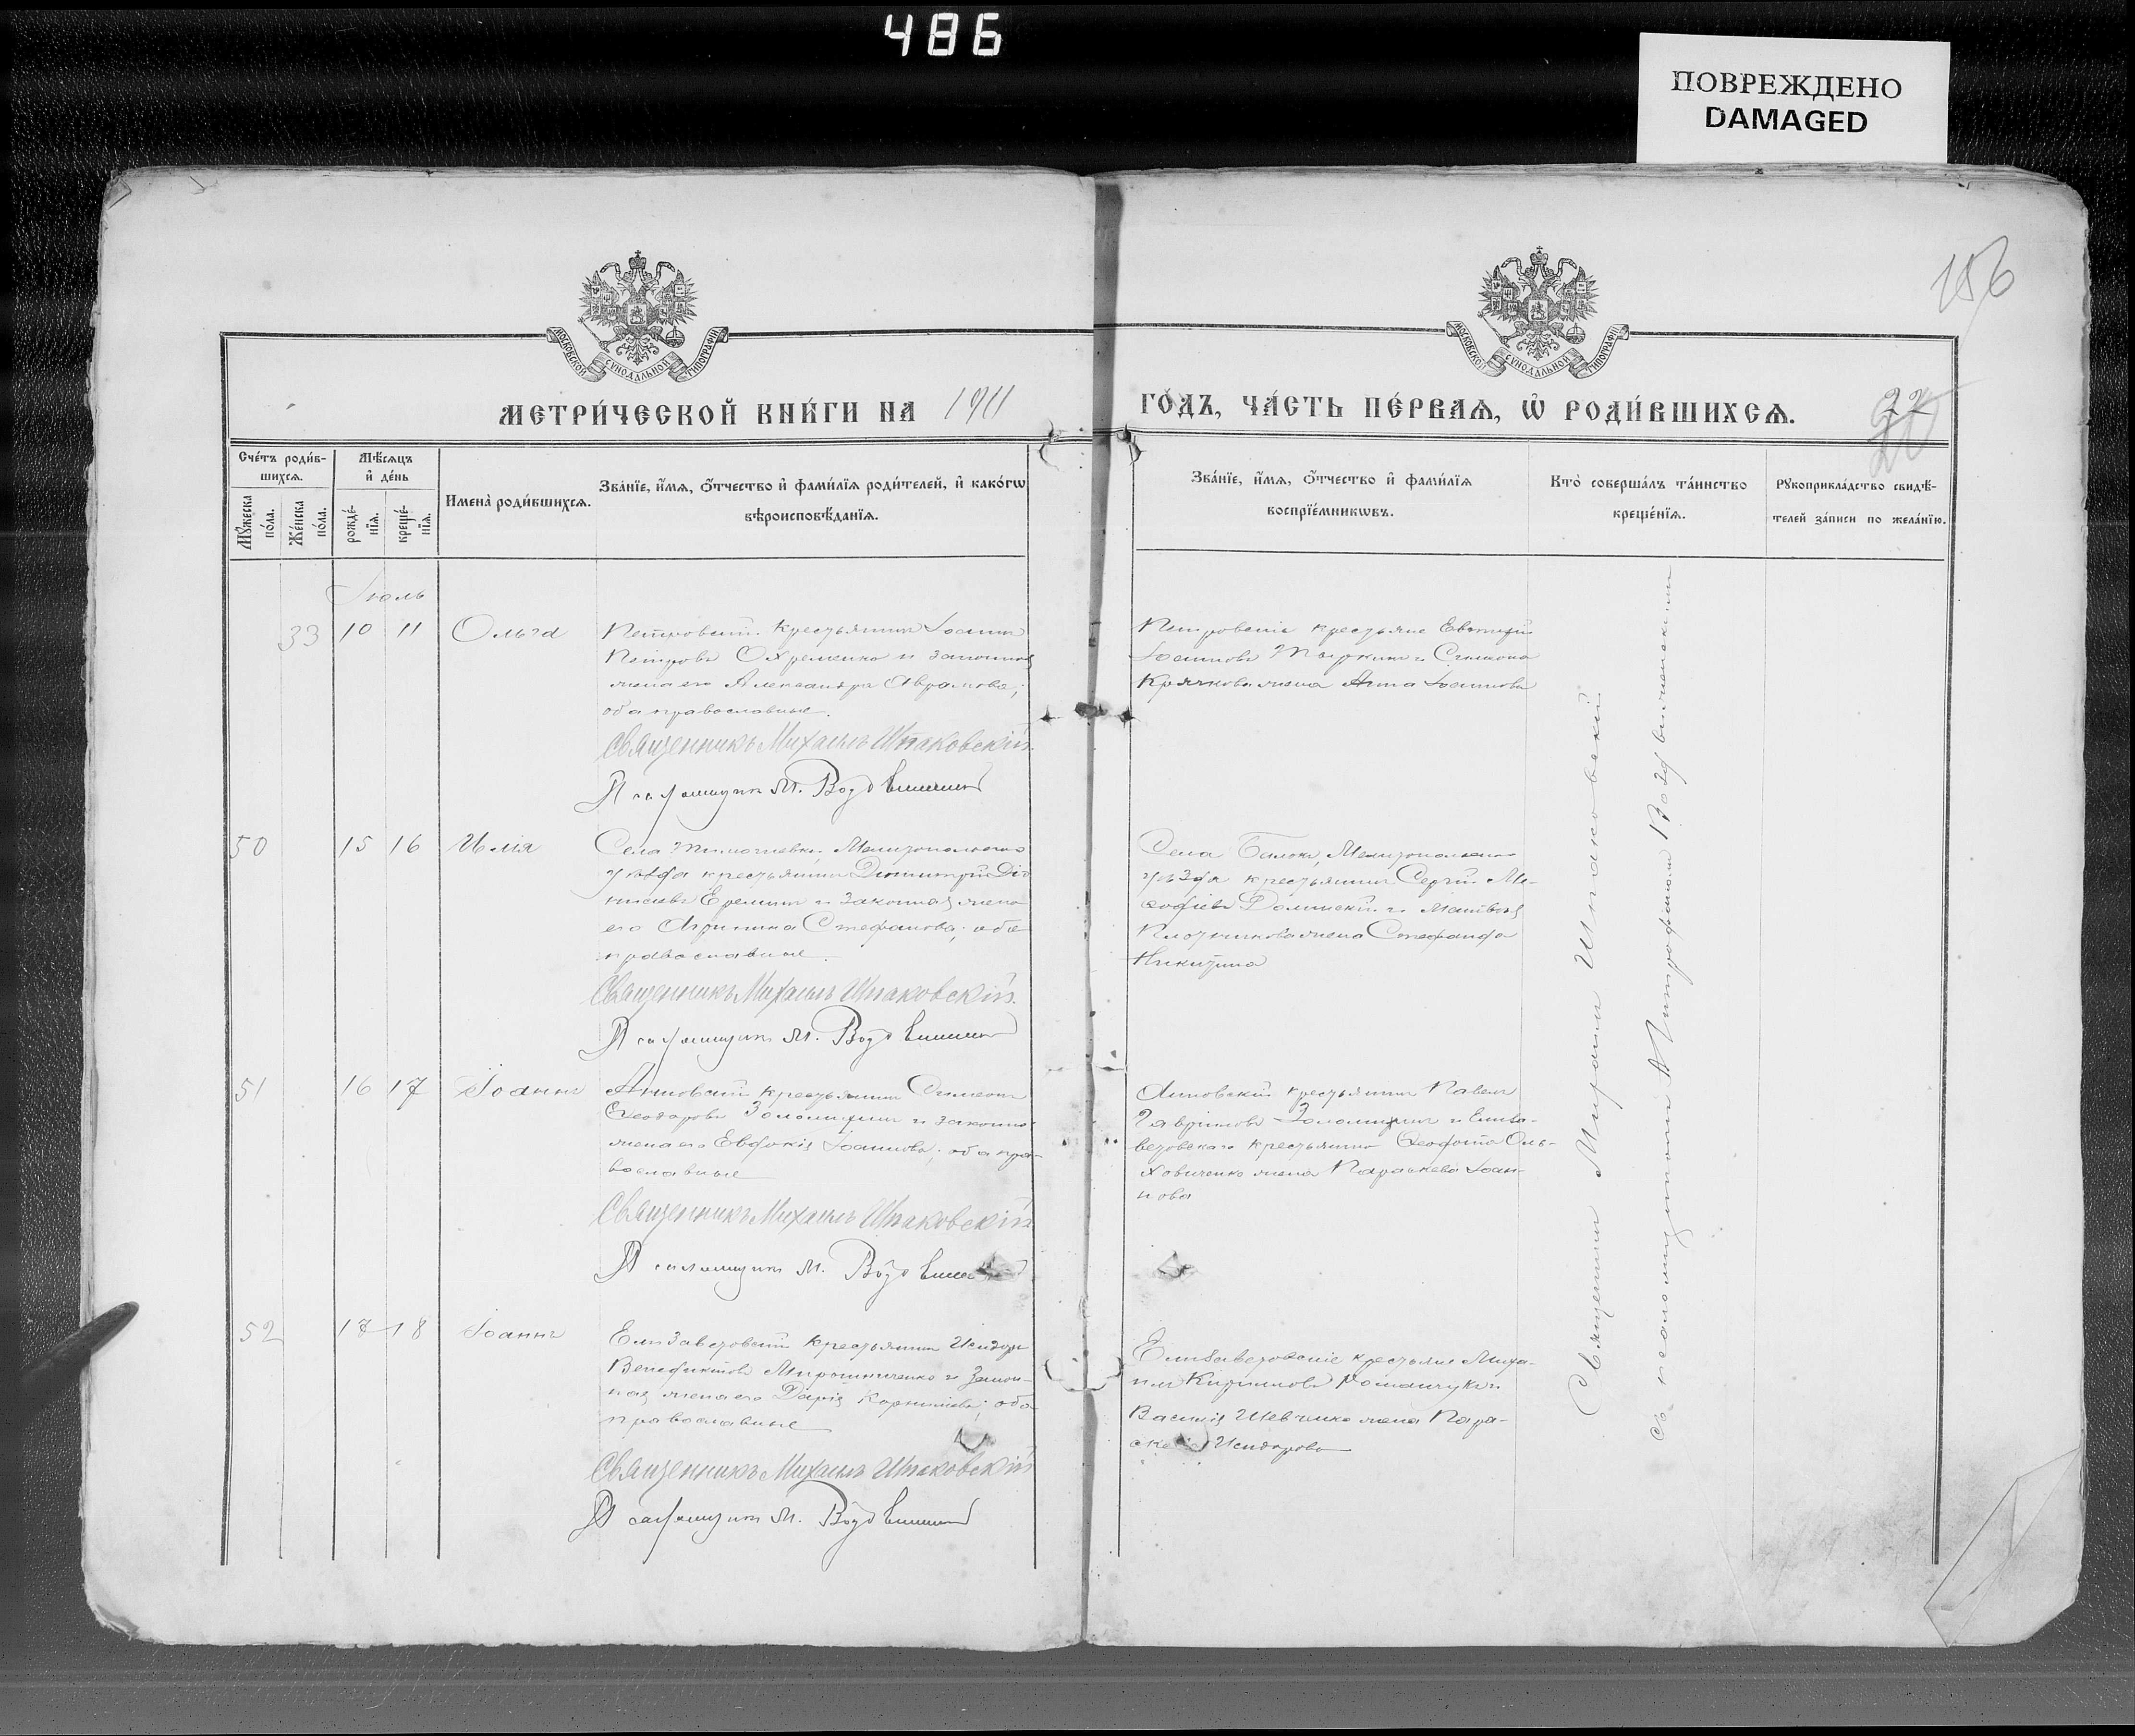 486
ПОВРЕЖДЕНО
DAMAGED
156
МОСКОВСКОЙ СУНОДАЛЬНОЙ ТИПОГРАФІИ
МОСКОВСКОЙ СУНОДАЛЬНОЙ ТИПОГРАФІИ
МЕТРИ́ЧЕСКОЙ КНИ́ГИ НА 1911
ГО́ДЪ, ЧА́СТЬ ПЕ́РВАѦ, Ѡ҆ РОДИ́ВШИХСѦ.
22
Сче́тъ роди́в-
шихсѧ.
Мѣ́сѧцъ
и҆ де́нь
Мꙋ́жеска
по́ла.
Же́нска
по́ла.
рожде́-
нїѧ.
креще́-
нїѧ.
Имена̀ роди́вшихсѧ.
Зва́нїе, и҆́мѧ, ѻ҆́тчество и҆ фами́лїѧ роди́телей, и҆ како́гѡ
вѣроисповѣ́данїѧ.
Зва́нїе, и҆́мѧ, ѻ҆́тчество и҆ фами́лїѧ
воспрїе́мникѡвъ.
Кто̀ соверша́лъ та́инство
креще́нїѧ.
Рꙋкоприкла́дство свидѣ́-
телей за́писи по жела́нїю.
Іюль
33 10 11 Ольга
Петровскій крестьянинъ Іоаннъ
Петровъ Охременко и законная
жена его Александра Аврамова;
оба православные.
Священникъ Михаилъ Шпаковскій.
Псаломщикъ М. Воздвиженскій
Петровскіе крестьяне Евтихій
Іоанновъ и Симеона
Крячкова жена Анна Іоаннова
50 15 16 Илія
Села Тимошевки, Мелитопольскаго
уѣзда крестьянинъ Димитрій Діо
нисіевъ Ереминъ и законная жена
его Агрипина Стефанова; оба
православные.
Священникъ Михаилъ Шпаковскій.
Псаломщикъ М. Воздвиженскій
Села Балокъ, Мелитопольскаго
уѣзда крестьянинъ Сергій Ме-
ѳодіевъ Долинскій и Матвея
Плотникова жена Стефанида
Никитина
51 16 17 Іоаннъ
Анновскій крестьянинъ Симеонъ
Ѳеодоровъ и законная
жена его Евдокія Іоаннова; оба пра-
вославные
Священникъ Михаилъ Шпаковскій
Псаломщикъ М. Воздвиженскій
Анновскій крестьянинъ Павелъ
Гавриловъ и Елиза-
ветовскаго крестьянина Ѳеодота Оль-
ховиченко жена Параскева Іоан-
нова
52 17 18 Іоаннъ
Елизаветовскій крестьянинъ Исидоръ
Венедиктовъ Мирошниченко и закон-
ная жена его Дарія Корнилієва; оба
православные
Священникъ Михаилъ Шпаковскій
Псаломщикъ М. Воздвиженскій
Елизаветовскіе крестьяне Миха-
илъ Кирилловъ Романчукъ и
Василія Шевченко жена Пара-
скева Исидорова
Священникъ Михаилъ Шпаковскій
съ псаломщикомъ Митрофаномъ Воздвиженскимъ